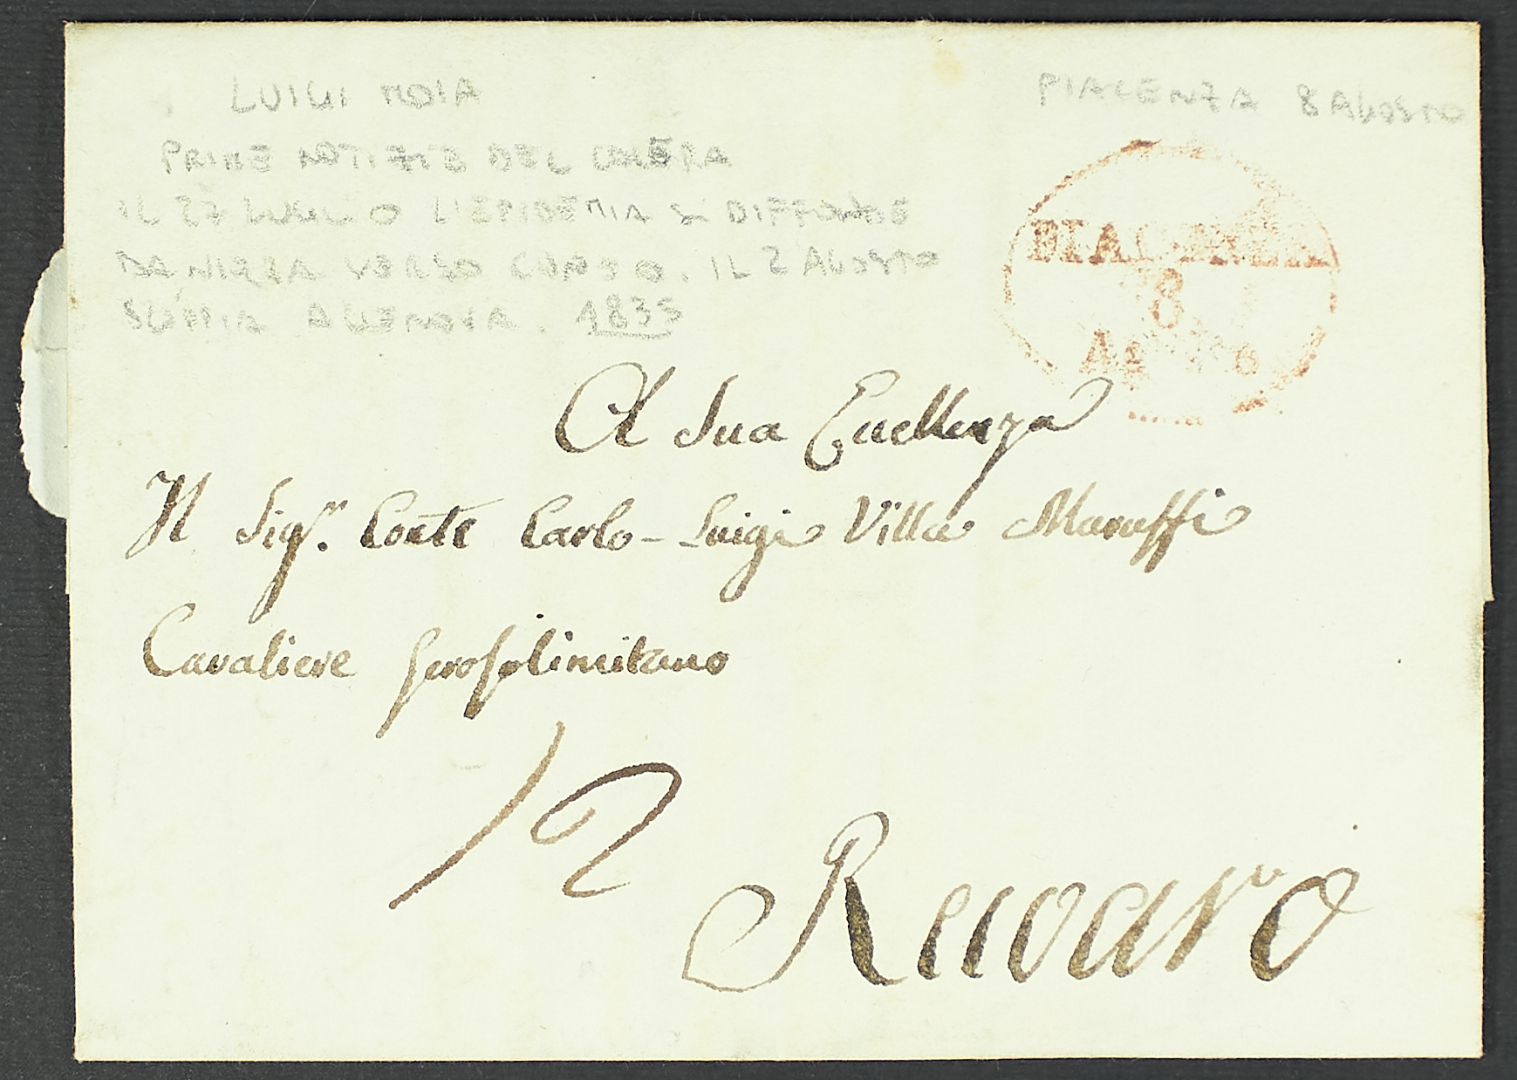 LUIGI MOIA
PRIME NOTIZIE DEL COLERA
IL 27 LUGLIO L'EPIDEMIA SI DIFFONDE
DA NIZZA VERSO CUNEO. IL 2 AGOSTO
A GENOVA. 1835
PIACENZA 8 AGOSTO
PIACENZA
8
AGOSTO
A Sua Eccellenza
Il Sigr. Conte Carlo-Luigi Villa Maruffi
Cavaliere Gerosolimitano
12
Recoaro